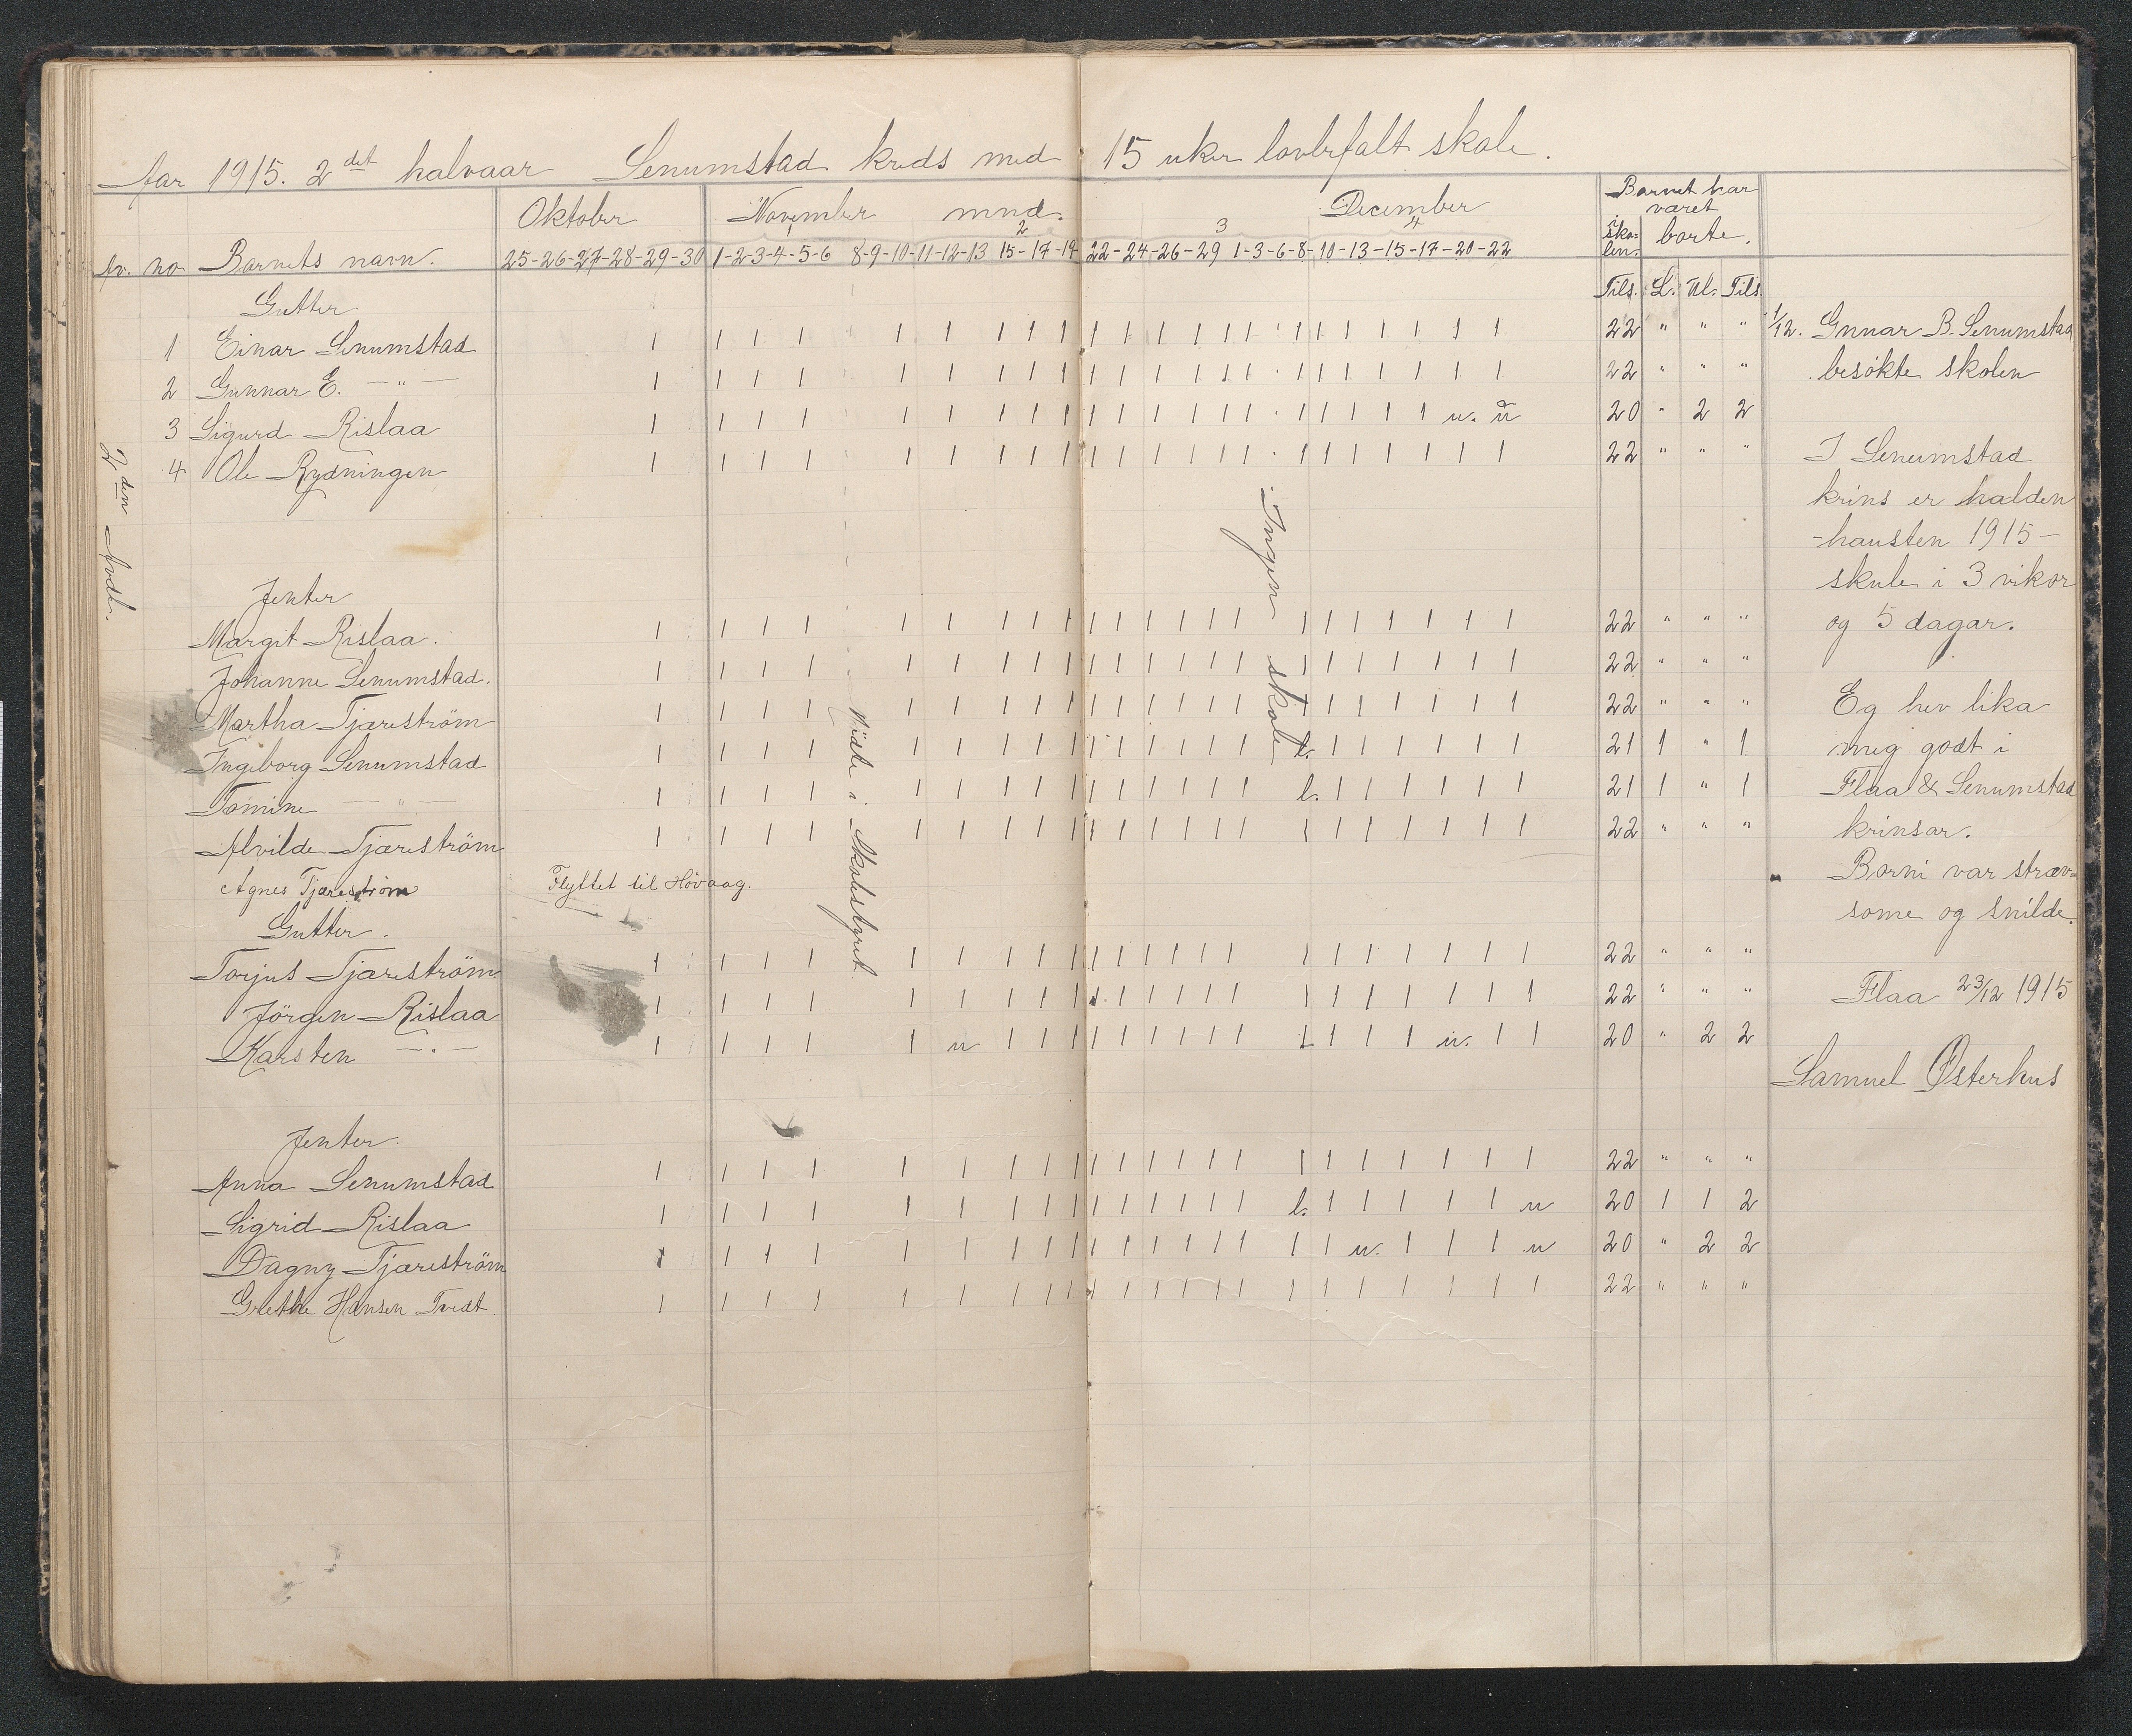 Aar 1915. 2det halvaar Senumstad kreds med 15 uker lovbefalt skole.
Oktober November mnd. December Barnet har været
1 2 3 4 i skolen. borte.
Av. no Barnets navn. 25-26-27-28-29-30 1-2-3-4-5-6 8-9-10-11-12-13 15-17-19 22-24-26-29 1-3-6-8-10-13-15-17-20-22
Tils. L. Ul. Tils.
2den Avdl.
Gutter
1 Einar Senumstad 1 1 1 1 1 1 1 1 1 1 1 1 1 1 1 1 1 1 1 1 1 1 22 " " "
2 Gunnar E. —"— 1 1 1 1 1 1 1 1 1 1 1 1 1 1 1 1 1 1 1 1 1 1 22 " " "
3 Sigurd Rislaa 1 1 1 1 1 1 1 1 1 1 1 1 1 1 1 1 1 1 1 1 u. u 20 " 2 2
4 Ole Rydningen 1 1 1 1 1 1 1 1 1 1 1 1 1 1 1 1 1 1 1 1 1 1 22 " " "
Jenter
Margit Rislaa. 1 1 1 1 1 1 1 1 1 1 1 1 1 1 1 1 1 1 1 1 1 1 22 " " "
Johanne Senumstad. 1 1 1 1 1 1 1 1 1 1 1 1 1 1 1 1 1 1 1 1 1 1 22 " " "
Martha Tjæreström 1 1 1 1 1 1 1 1 1 1 1 1 1 1 1 1 1 1 1 1 1 1 22 " " "
Ingeborg Senumstad 1 1 1 1 1 1 1 1 1 1 1 1 1 1 l. 1 1 1 1 1 1 1 21 1 " 1
Tomine —"— 1 1 1 1 1 1 1 1 1 1 1 1 1 1 l. 1 1 1 1 1 1 1 21 1 " 1
Alvilde Tjæreström 1 1 1 1 1 1 1 1 1 1 1 1 1 1 1 1 1 1 1 1 1 1 22 " " "
Agnes Tjæreström Flyttet til Hövaag.
Gutter.
Torjus Tjæreström 1 1 1 1 1 1 1 1 1 1 1 1 1 1 1 1 1 1 1 1 1 1 22 " " "
Jörgen Rislaa 1 1 1 1 1 1 1 1 1 1 1 1 1 1 1 1 1 1 1 1 1 1 22 " " "
Karsten —"— 1 1 1 1 1 u 1 1 1 1 1 1 1 1 1 1 1 1 1 u. 1 1 20 " 2 2
Jenter.
Anna Senumstad 1 1 1 1 1 1 1 1 1 1 1 1 1 1 1 1 1 1 1 1 1 1 22 " " "
Sigrid Rislaa 1 1 1 1 1 1 1 1 1 1 1 1 1 1 l. 1 1 1 1 1 1 u 20 1 1 2
Dagny Tjæreström 1 1 1 1 1 1 1 1 1 1 1 1 1 1 1 1 u. 1 1 1 1 u 20 " 2 2
Grethe Hansen Tvedt 1 1 1 1 1 1 1 1 1 1 1 1 1 1 1 1 1 1 1 1 1 1 22 " " "
Möde i Skolestyret
Ingen skole
1/12. Gnnar B. Senumstad
besökte skolen
I Senumstad
krins er halden
hausten 1915 —
skule i 3 vikor
og 5 dagar.
Eg hev lika
mig godt i
Flaa & Senumstad
krinsar.
Borni var stræv-
some og snilde.
Flaa 23/12 1915
Samuel Østerhus